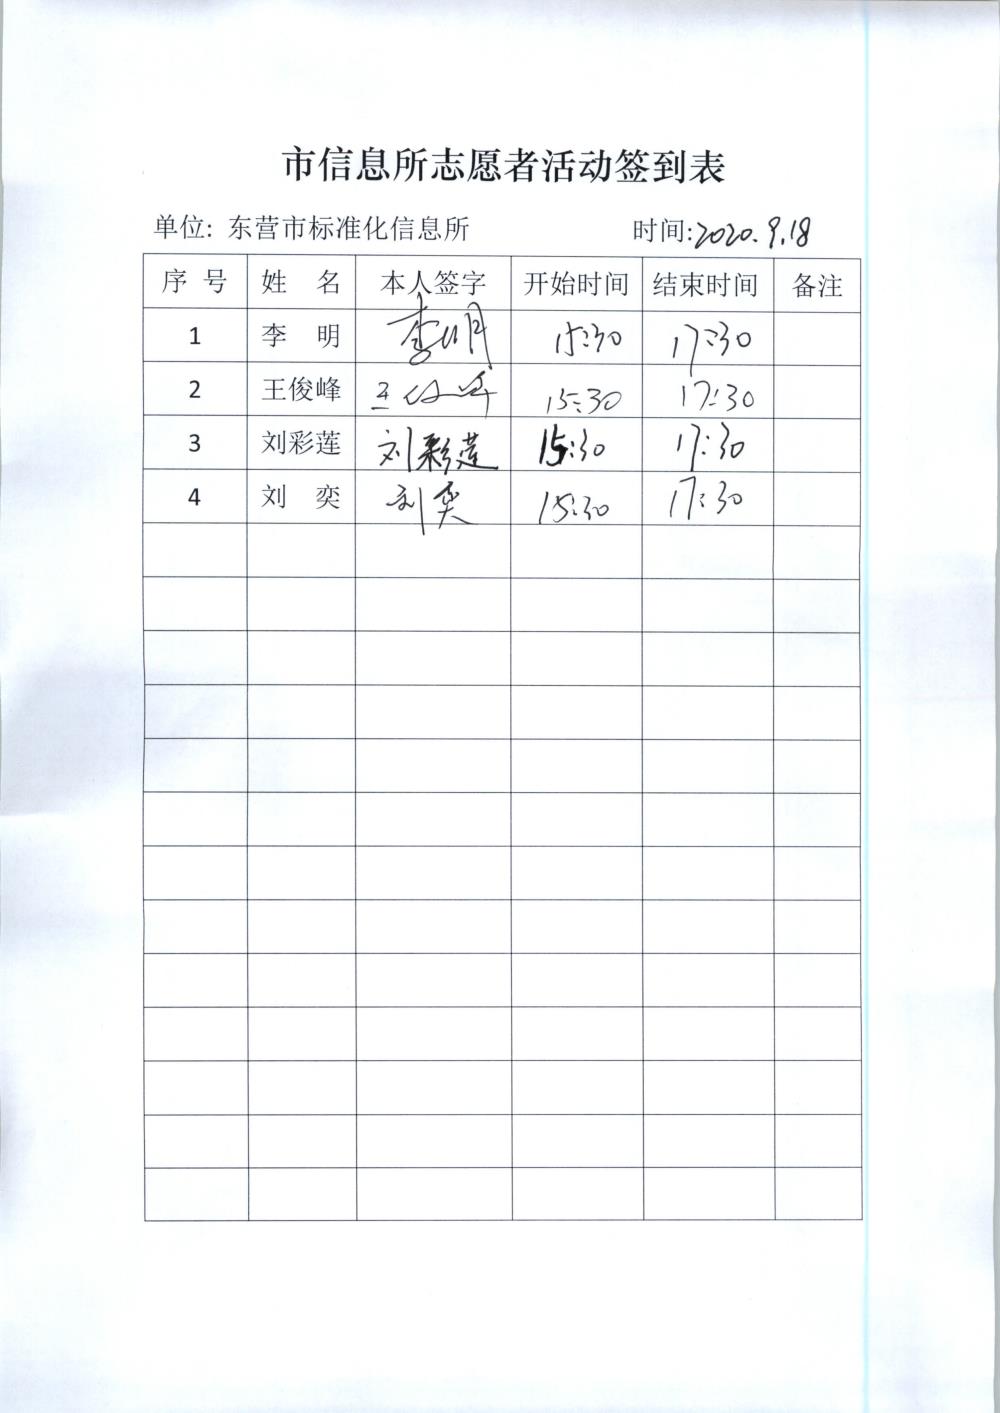 市信息所志愿者活动签到表
单位: 东营市标准化信息所 时间:2020.9.18
序 号 姓 名 本人签字 开始时间 结束时间 备注
1 李 明 李明 15:30 17:30
2 王俊峰 王俊峰 15:30 17:30
3 刘彩莲 刘彩莲 15:30 17:30
4 刘 奕 刘奕 15:30 17:30